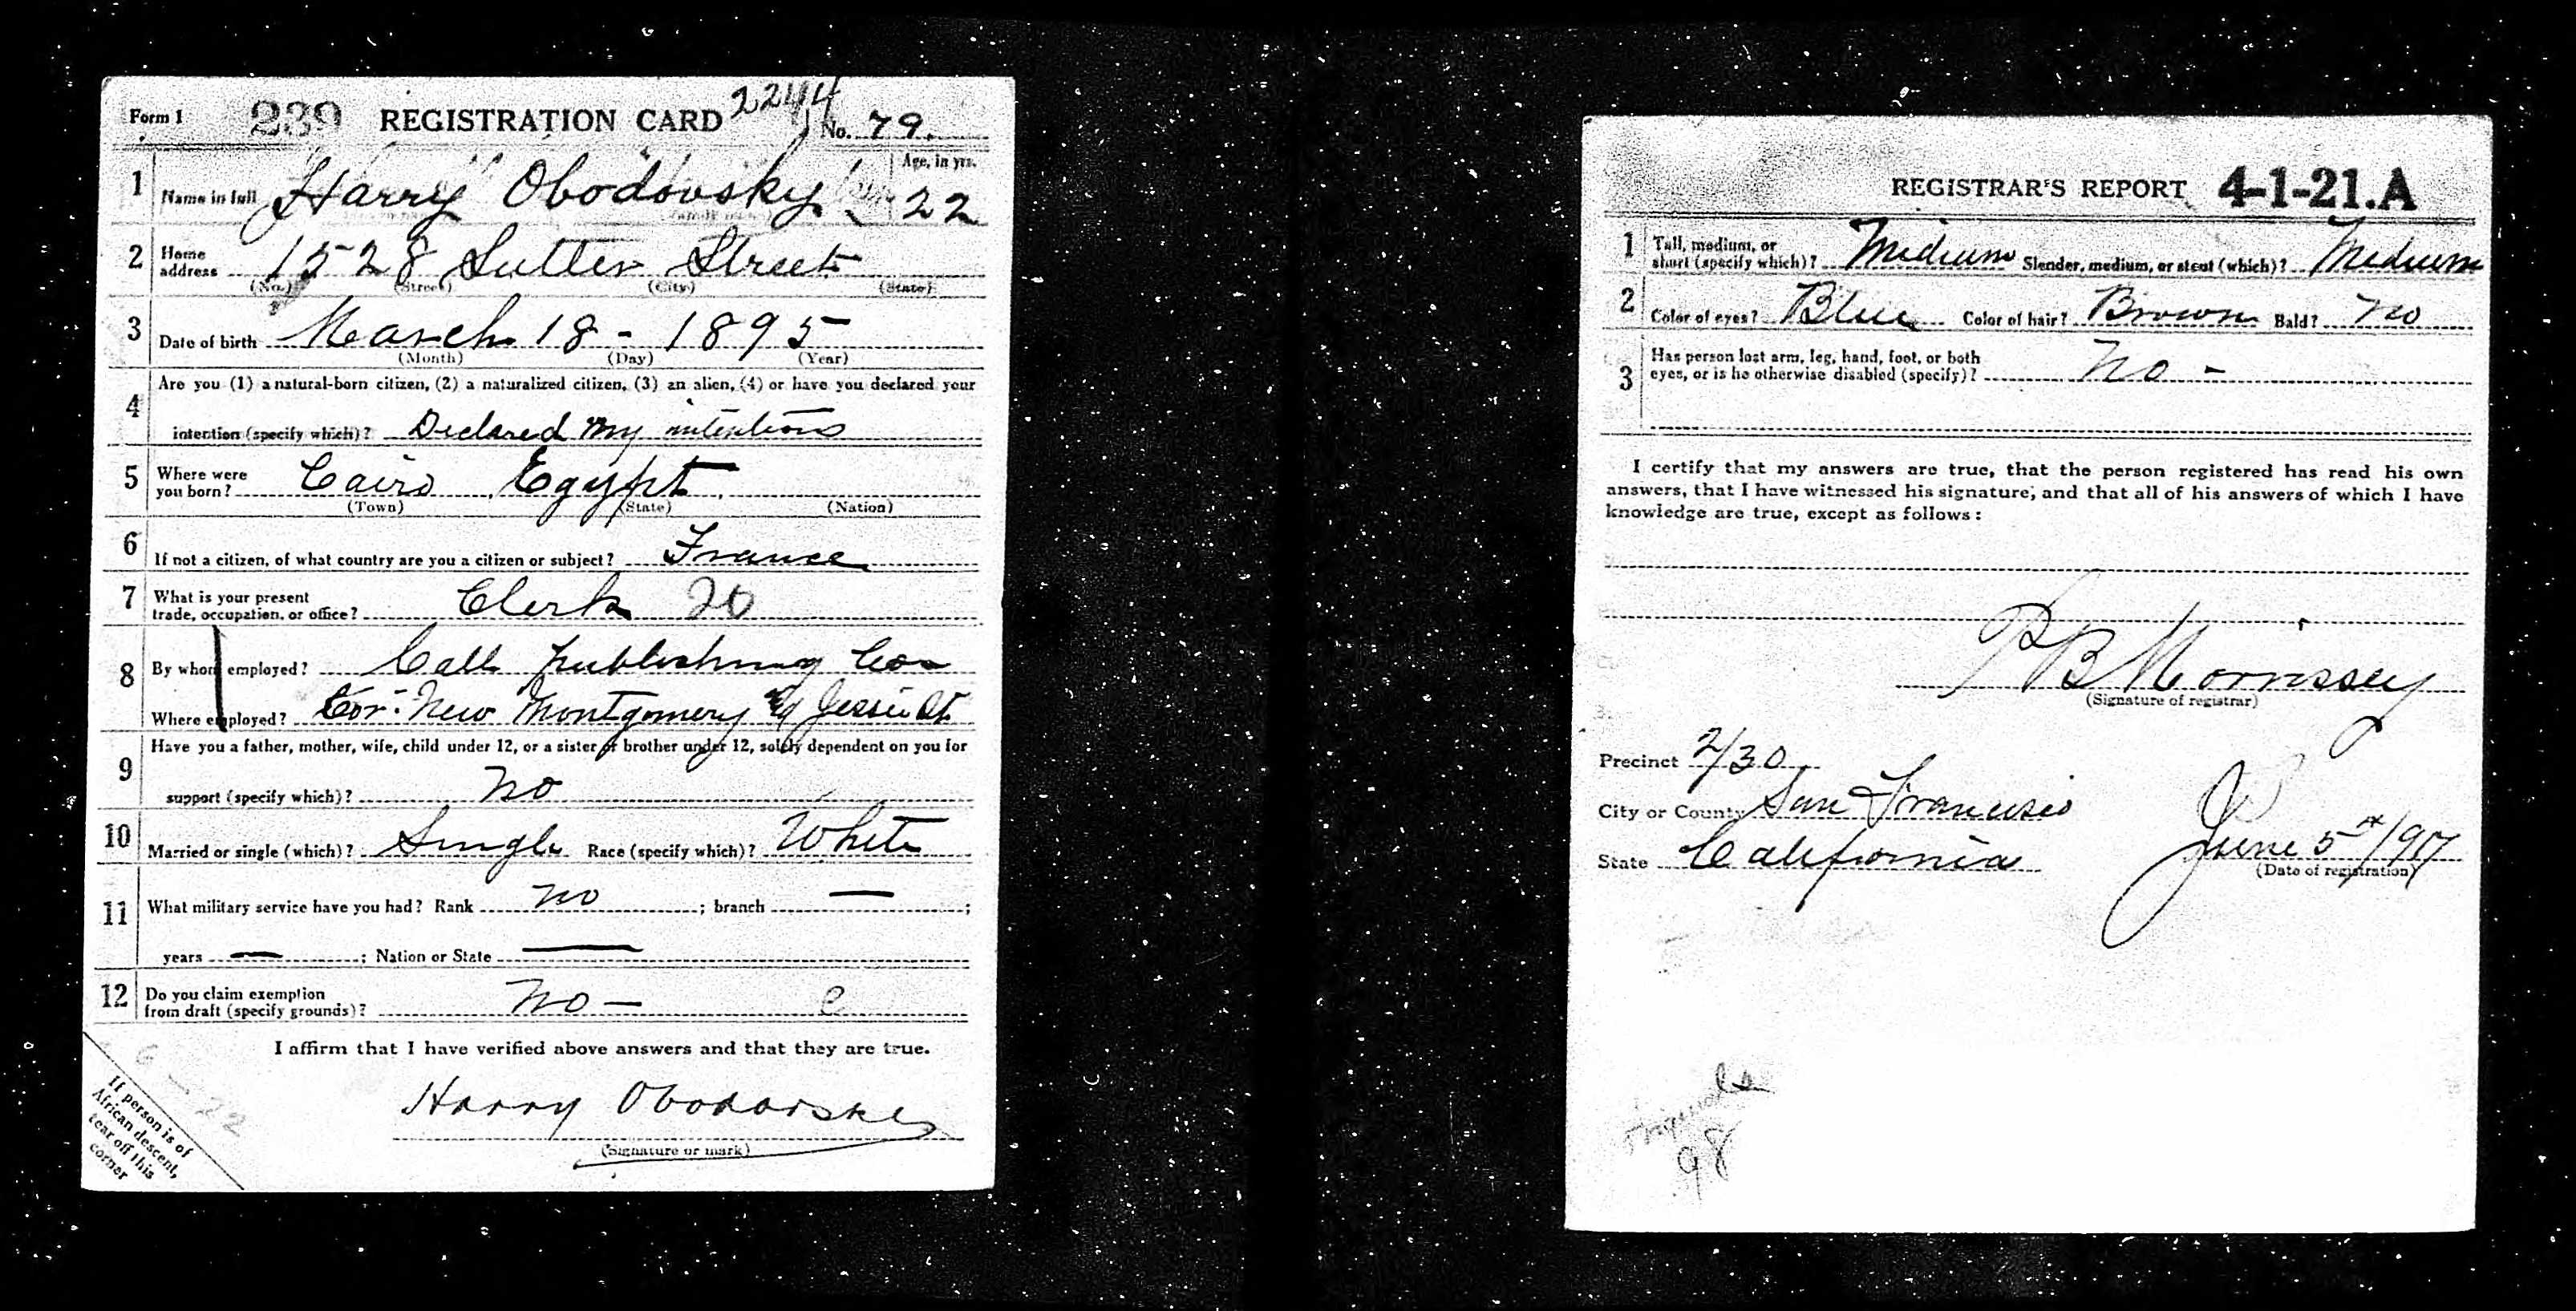 Form 1 239 REGISTRATION CARD 2244 No. 79.
1 Name in full Harry Obodovsky Age, in yrs. 22
2 Home address 1528 Sutter Street
(No.) (Street) (City) (State)
3 Date of birth March 18 - 1895
(Month) (Day) (Year)
4 Are you (1) a natural-born citizen, (2) a naturalized citizen, (3) an alien, (4) or have you declared your
intention (specify which)? Declared my intentions
5 Where were you born? Cairo Egypt.
(Town) (State) (Nation)
6 If not a citizen, of what country are you a citizen or subject? France
7 What is your present trade, occupation, or office? Clerk 20
8 By whom employed? Call publishing Co.
Where employed? Cor. New Montgomery & Jessie St.
9 Have you a father, mother, wife, child under 12, or a sister or brother under 12, solely dependent on you for
support (specify which)? No
10 Married or single (which)? Single Race (specify which)? White
11 What military service have you had? Rank no ; branch — ;
years — ; Nation or State —
12 Do you claim exemption from draft (specify grounds)? No — C
I affirm that I have verified above answers and that they are true.
Harry Obodovsky
(Signature or mark)
6 — 22
If person is of
African descent,
tear off this
corner
REGISTRAR'S REPORT 4-1-21.A
1 Tall, medium, or short (specify which)? Medium Slender, medium, or stout (which)? Medium
2 Color of eyes? Blue Color of hair? Brown Bald? No
3 Has person lost arm, leg, hand, foot, or both
eyes, or is he otherwise disabled (specify)? No -
I certify that my answers are true, that the person registered has read his own
answers, that I have witnessed his signature, and that all of his answers of which I have
knowledge are true, except as follows:
P B Morrissey
(Signature of registrar)
Precinct 2/30
City or County San Francisco
State California June 5th/1917
(Date of registration)
98